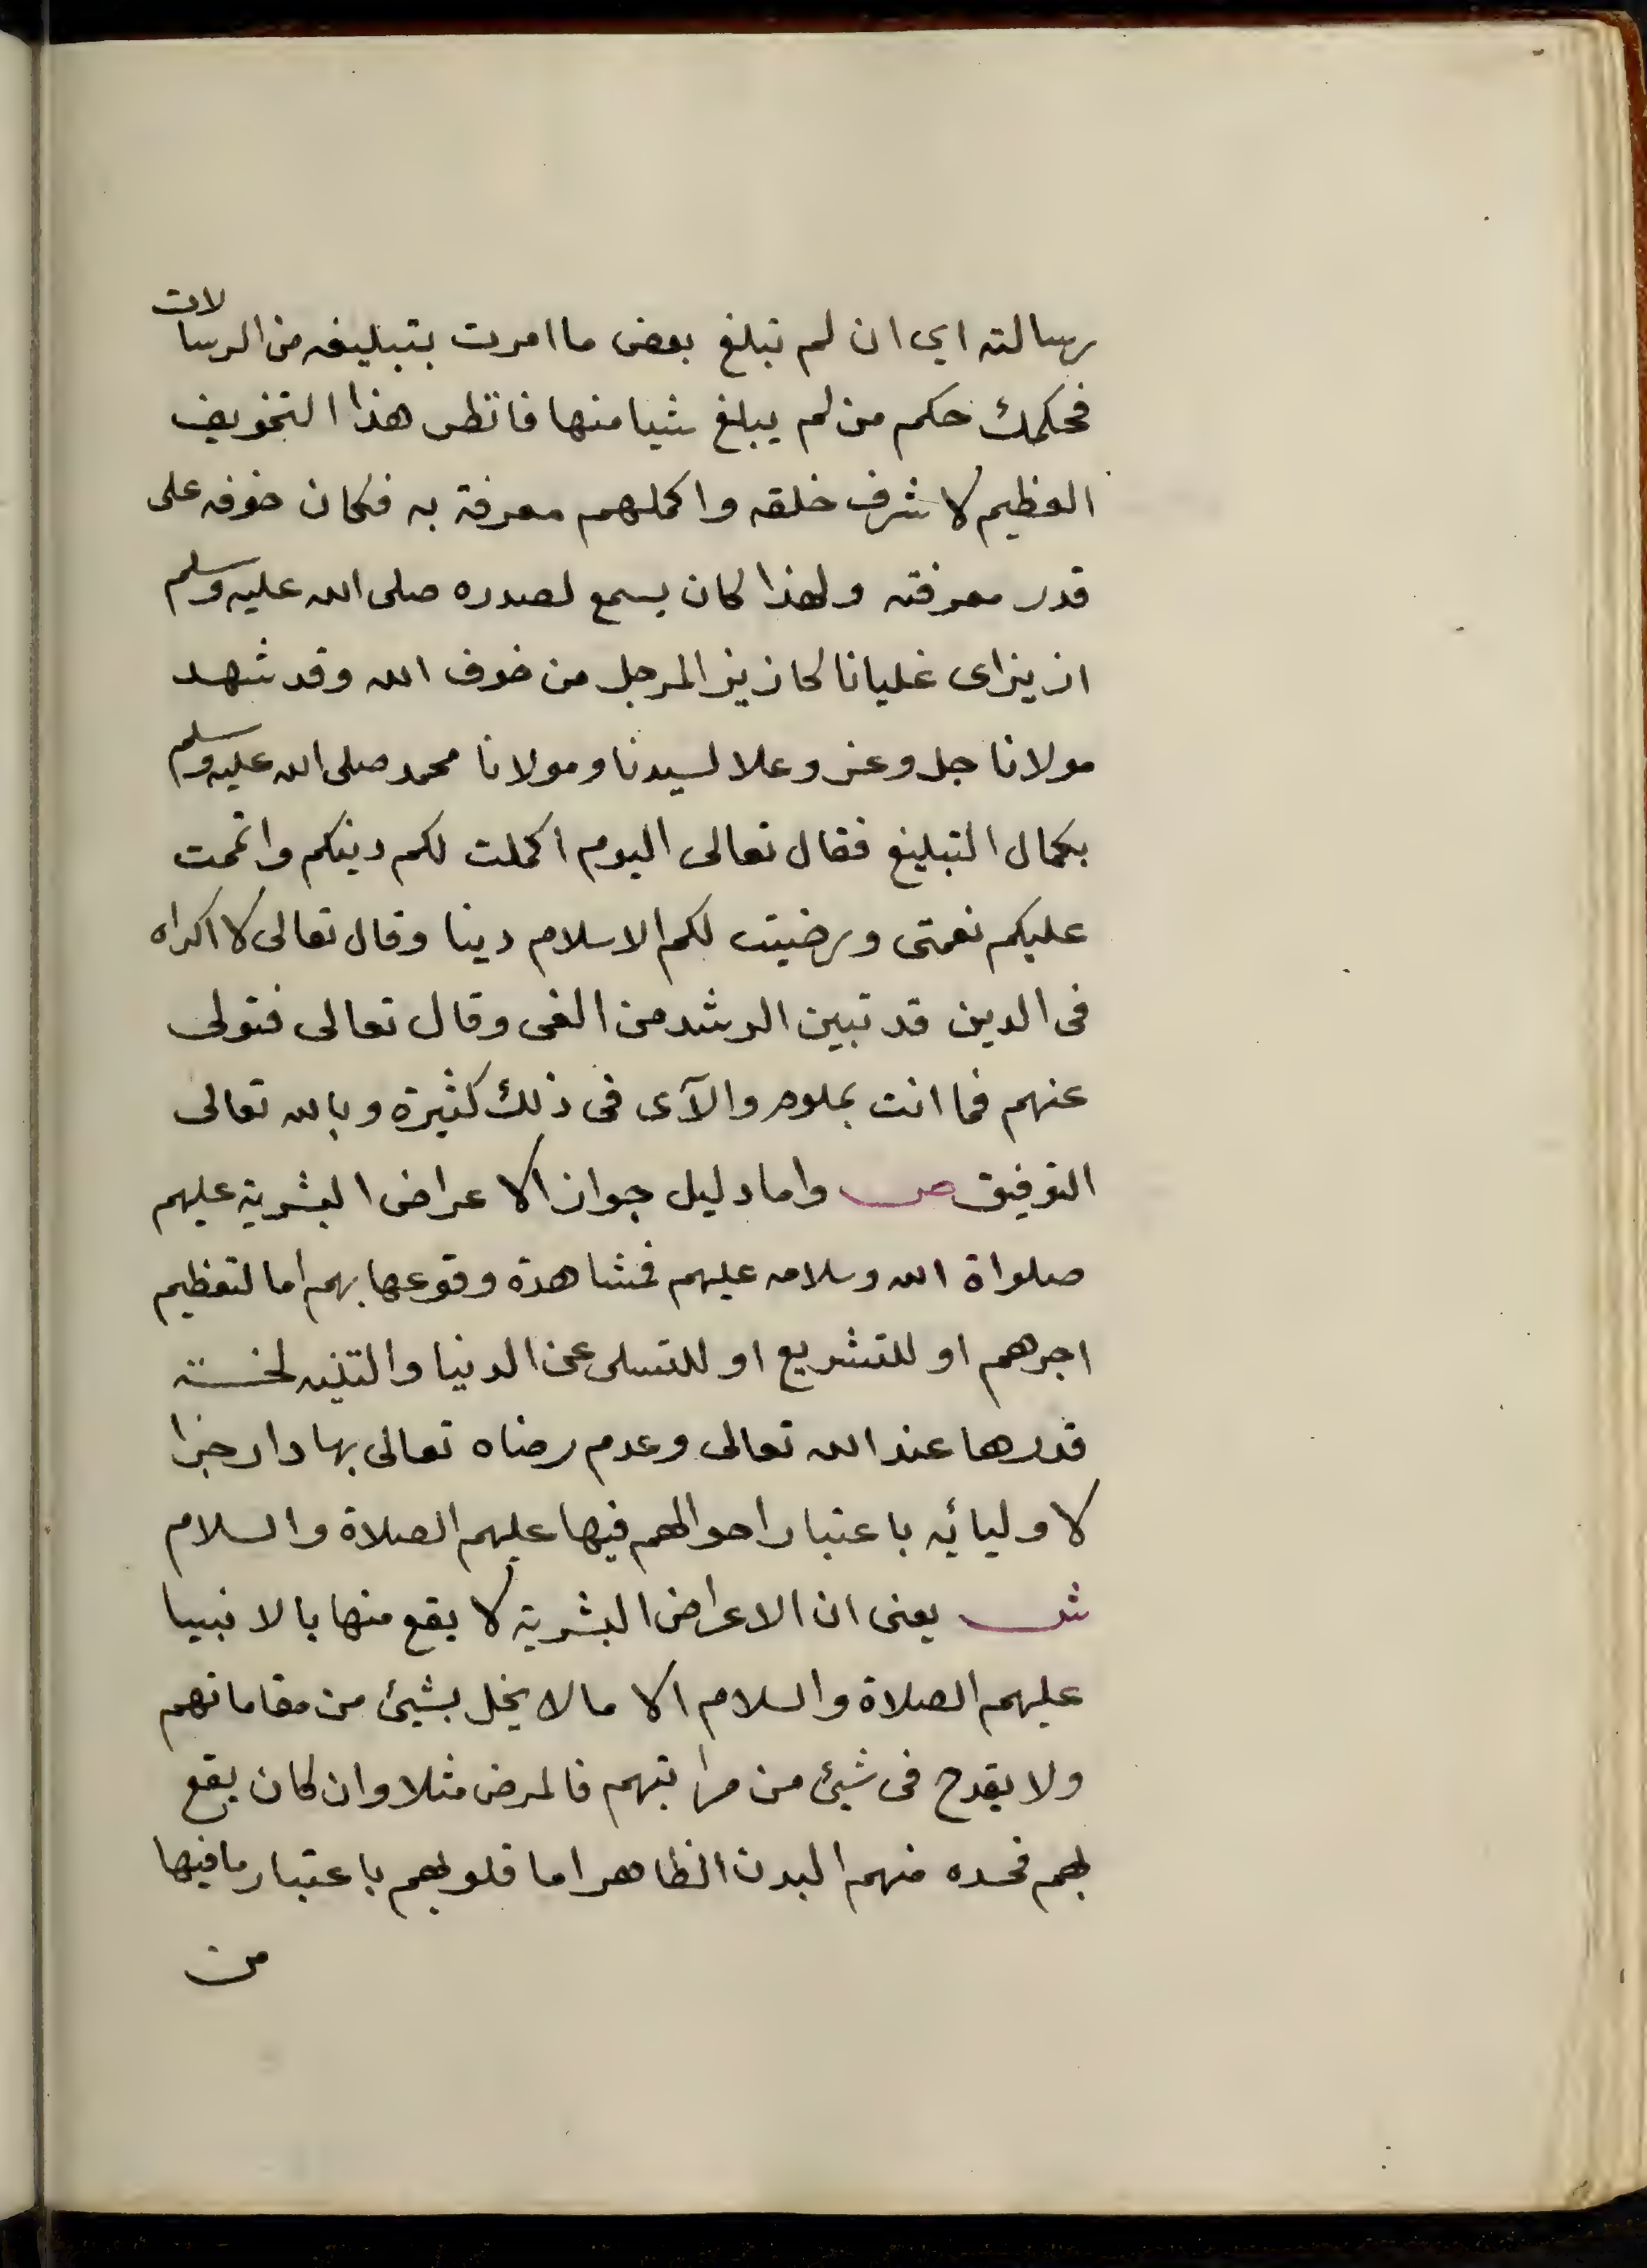 رسالته اي ان لم تبلغ بعض ما امرت بتبليغه من الرسالات
فحكمك حكم من لم يبلغ شيا منها فانظر هذا التخويف
العظيم لاشرف خلقه واكملهم معرفة به فكان خوفه على
قدر معرفته ولهذا كان يسمع لصدره صلى الله عليه وسلم
ازيزاى غليانا كازيز المرجل من خوف الله وقد شهد
مولانا جل وعز وعلا لسيدنا ومولانا محمد صلى الله عليه وسلم
بكمال التبليغ فقال تعالى اليوم اكملت لكم دينكم واتممت
عليكم نعمتى ورضيت لكم الاسلام دينا وقال تعالى لا اكراه
فى الدين قد تبين الرشد من الغى وقال تعالى فتولى
عنهم فما انت بملوم والآى فى ذلك كثيرة وبالله تعالى
التوفيق ص واما دليل جواز الاعراض البشرية عليهم
صلواة الله وسلامه عليهم فمشاهدة وقوعها بهم اما لتعظيم
اجرهم او للتشريع او للتسلى عن الدنيا والتنبه لخسة
قدرها عند الله تعالى وعدم رضاه تعالى بها دار جزا
لاوليائه باعتبار احوالهم فيها عليهم الصلاة والسلام
ش يعنى ان الاعراض البشرية لا يقع منها بالانبيا
عليهم الصلاة والسلام الا مالا يخل بشيئ من مقاماتهم
ولا يقدح فى شيئ من مراتبهم فالمرض مثلا وان كان يقع
لهم فحده منهم البدن الظاهر اما قلوبهم باعتبار ما فيها
من